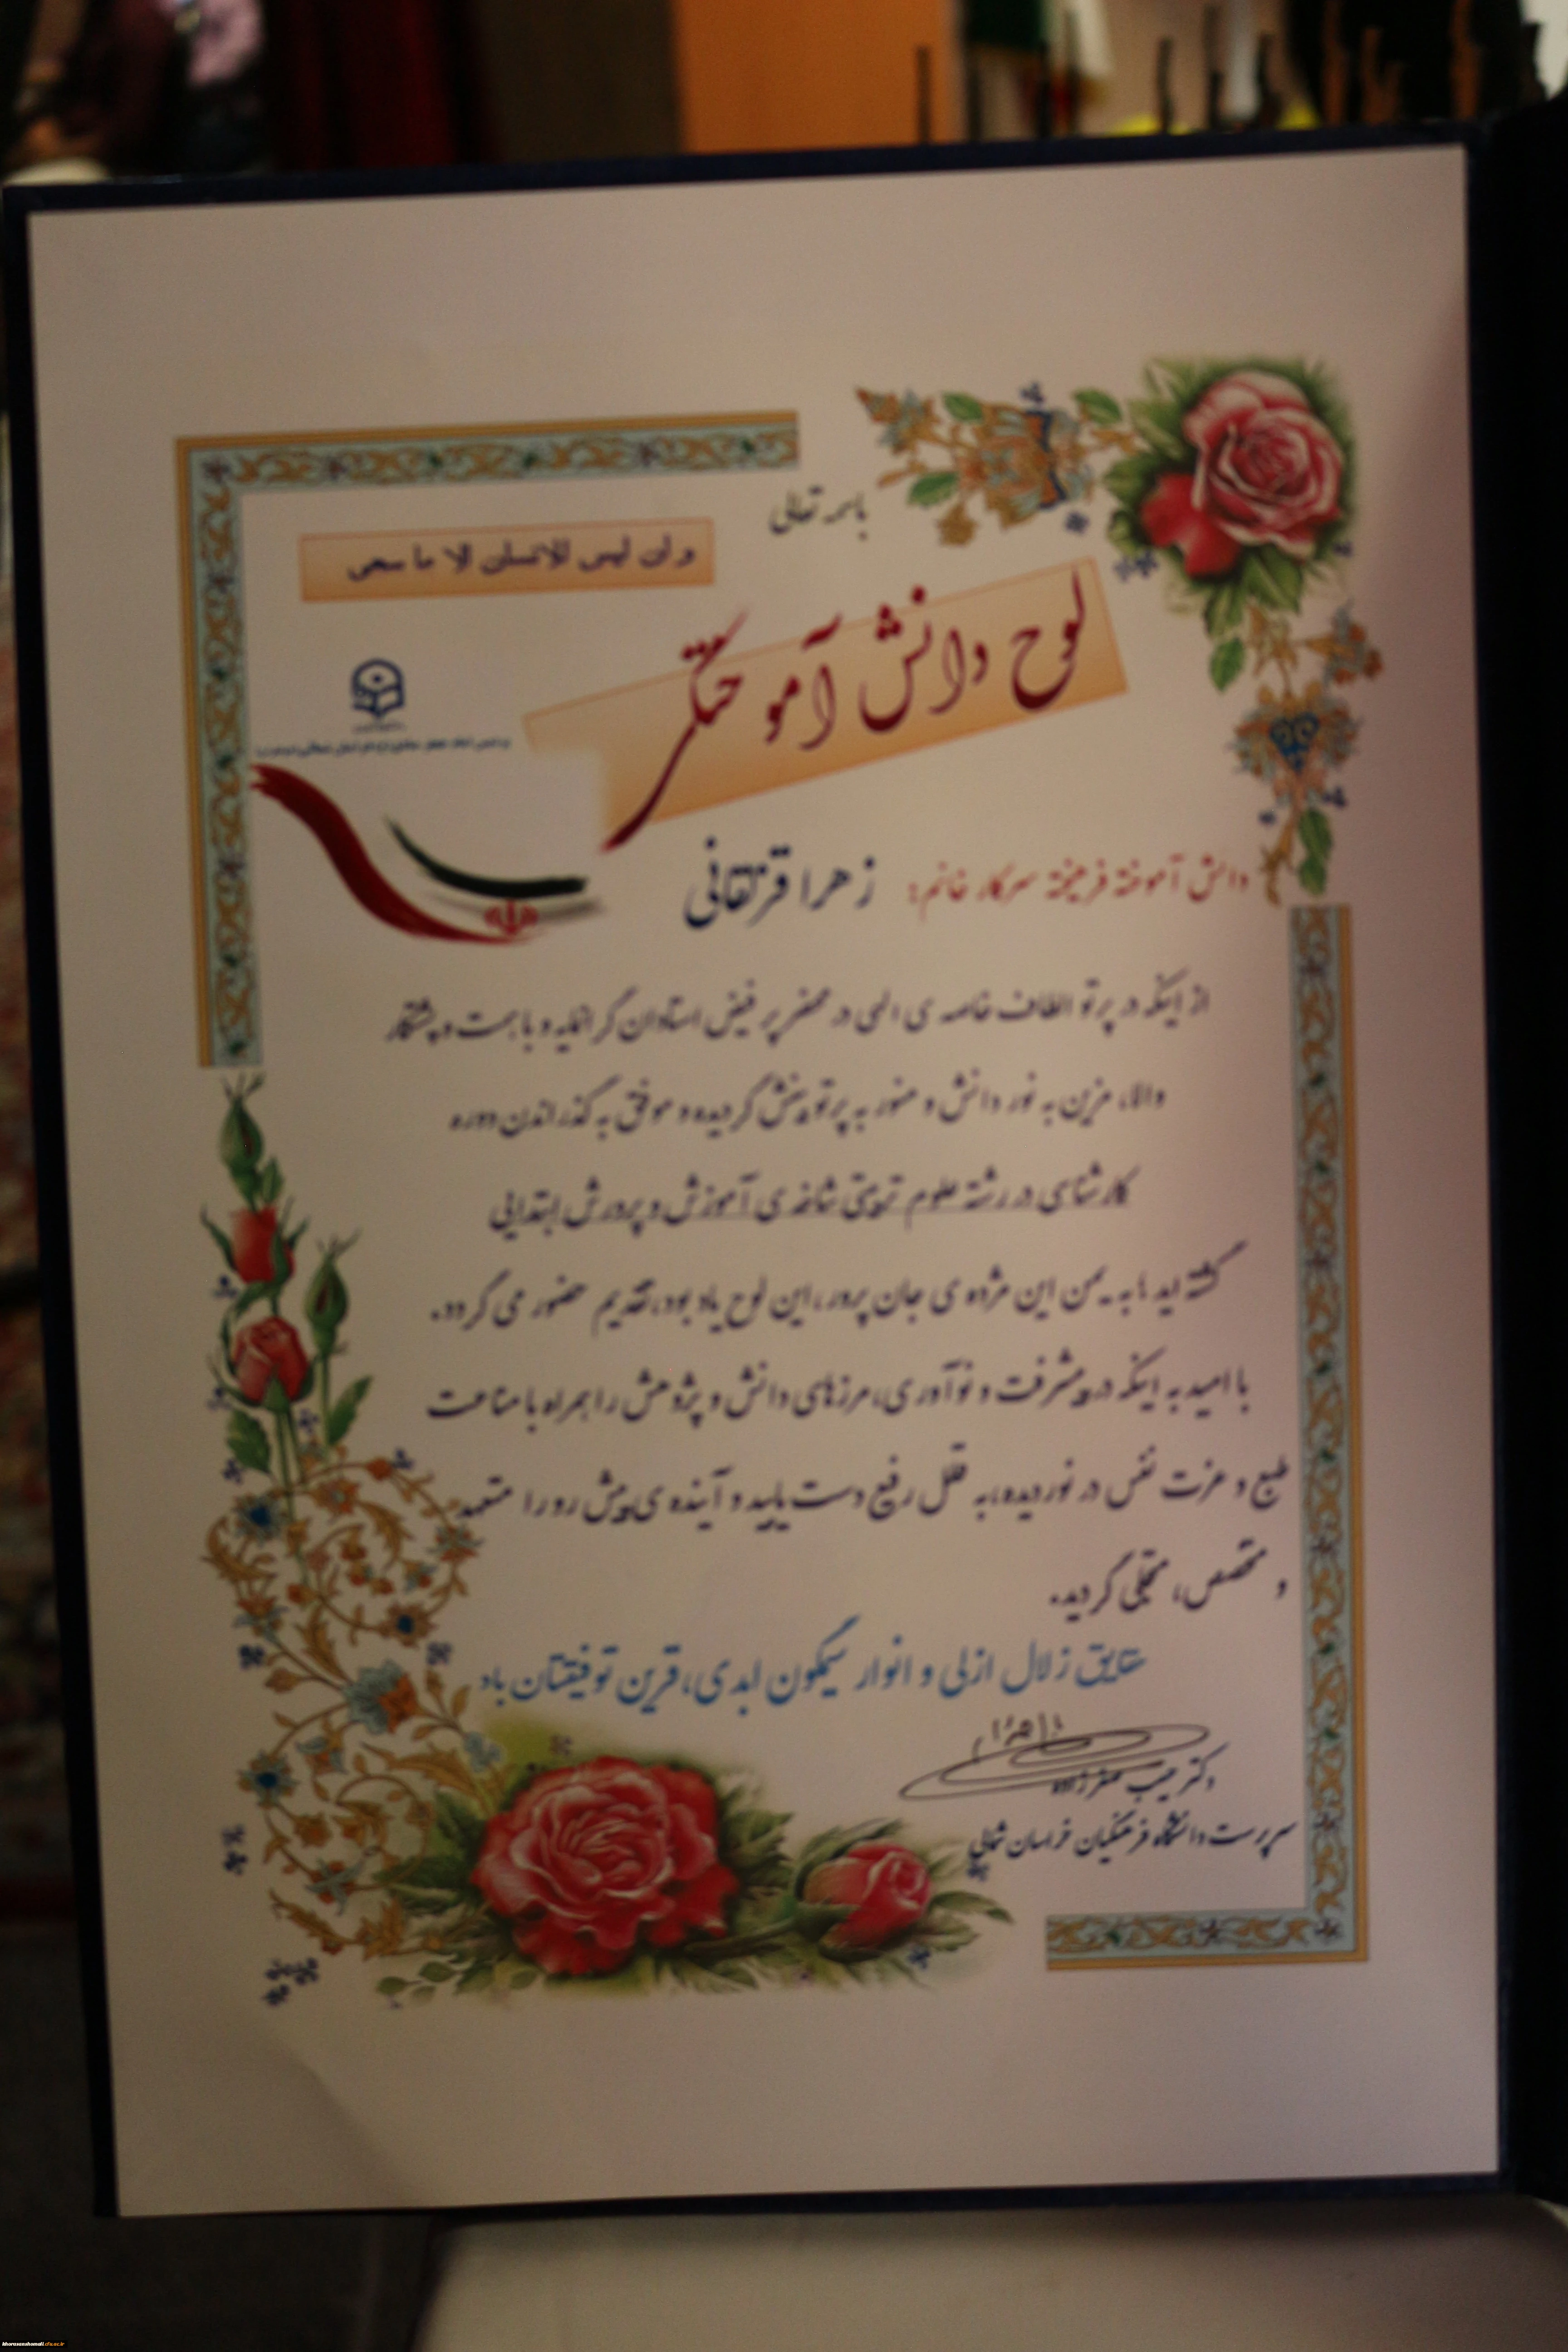 باسمه تعالی
و ان لیس للانسان الا ما سعی
لوح دانش آموختگی
دانش آموخته فرهیخته سرکار خانم: زهرا قرتقانی
از اینکه در پرتو الطاف خاصه ی الهی در محضر پر فیض استادان گرانمایه و با همت و پشتکار
والا، مزین به نور دانش و منور به پرتو بینش گردیده و موفق به گذراندن دوره
کارشناسی در رشته علوم تربیتی شاخه ی آموزش و پرورش ابتدایی
گشته اید ما به یمن این مژده ی جان پرور، این لوح یاد بود، تقدیم حضور می گردد.
با امید به اینکه در پیشرفت و نوآوری، مرزهای دانش و پژوهش را همراه با مناعت
طبع و عزت نفس در نوردیده، به قلل رفیع دست یابید و آینده ی پیش رو را متعهد
و متخصص، متجلی گردید.
حقایق زلال ازلی و انوار سیمگون ابدی، قرین توفیقتان باد
دکتر حبیب صفرزاده
سرپرست دانشگاه فرهنگیان خراسان شمالی
khorasanshomali.cfu.ac.ir